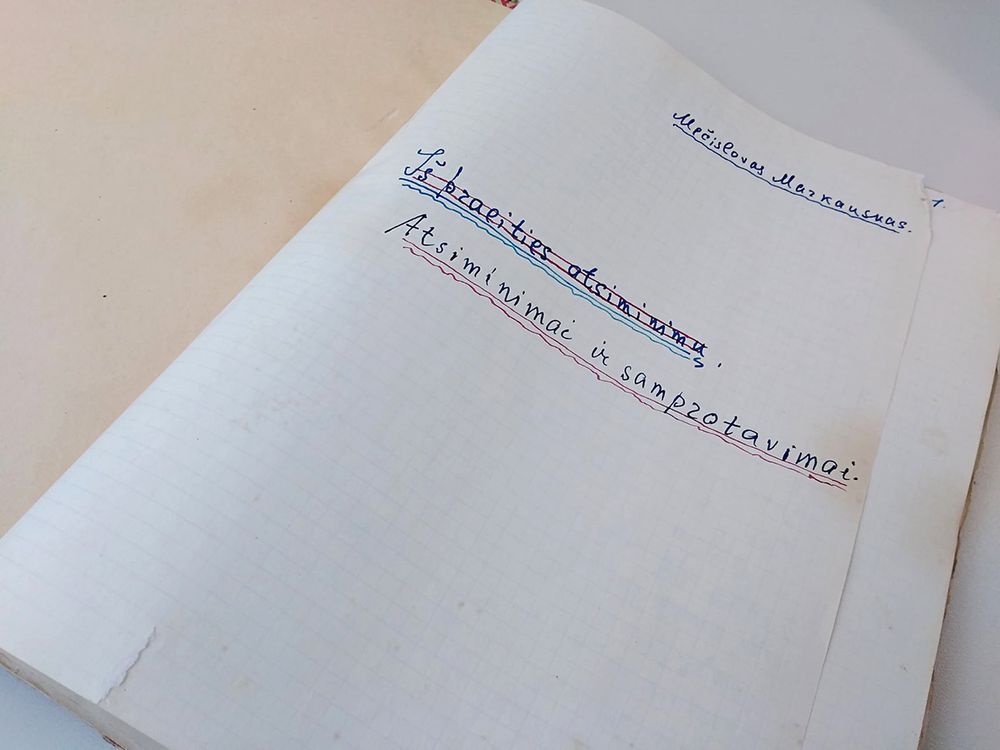 Mečislovas Markauskas.
1.
Iš praeities atsiminimų.
Atsiminimai ir samprotavimai.